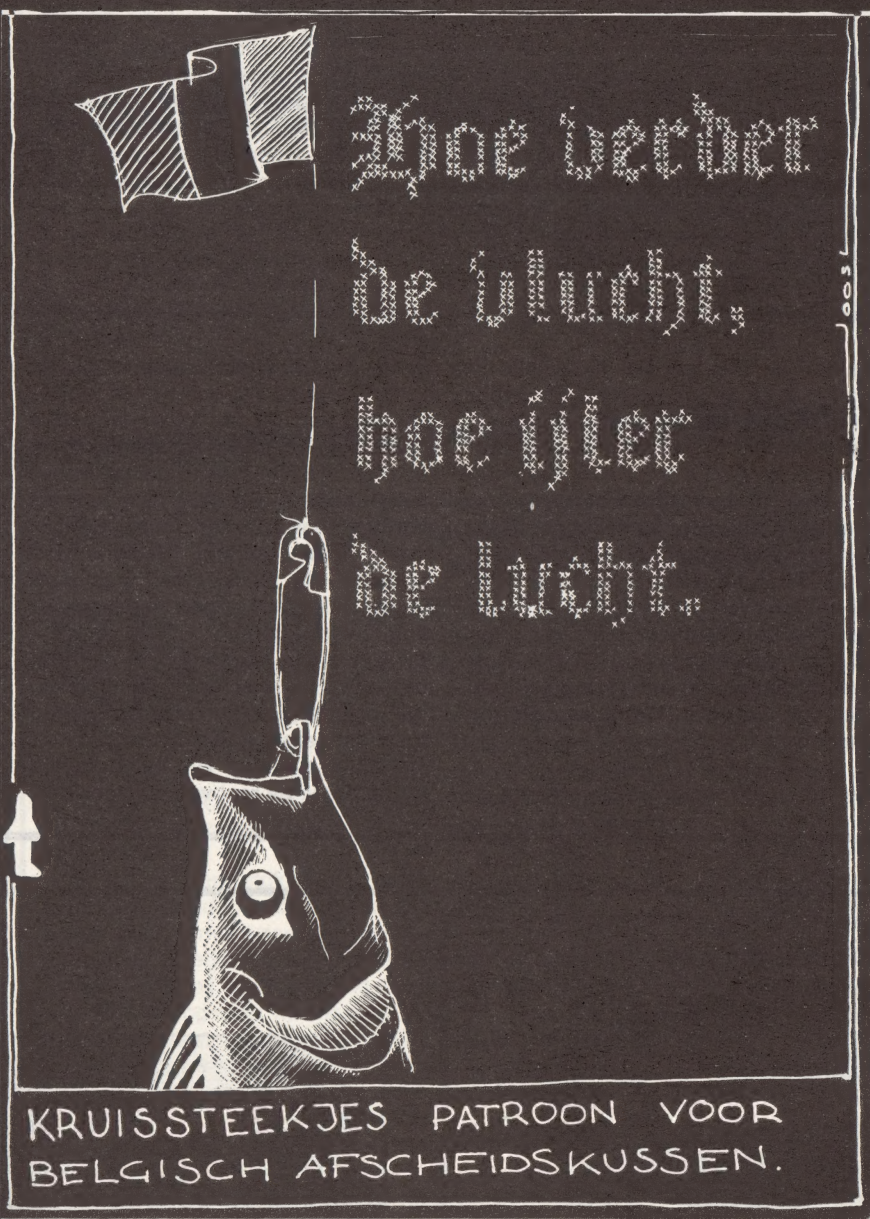 Hoe verder
de vlucht,
hoe ijler
de lucht.
JOOSL
KRUISSTEEKJES PATROON VOOR
BELGISCH AFSCHEIDSKUSSEN.